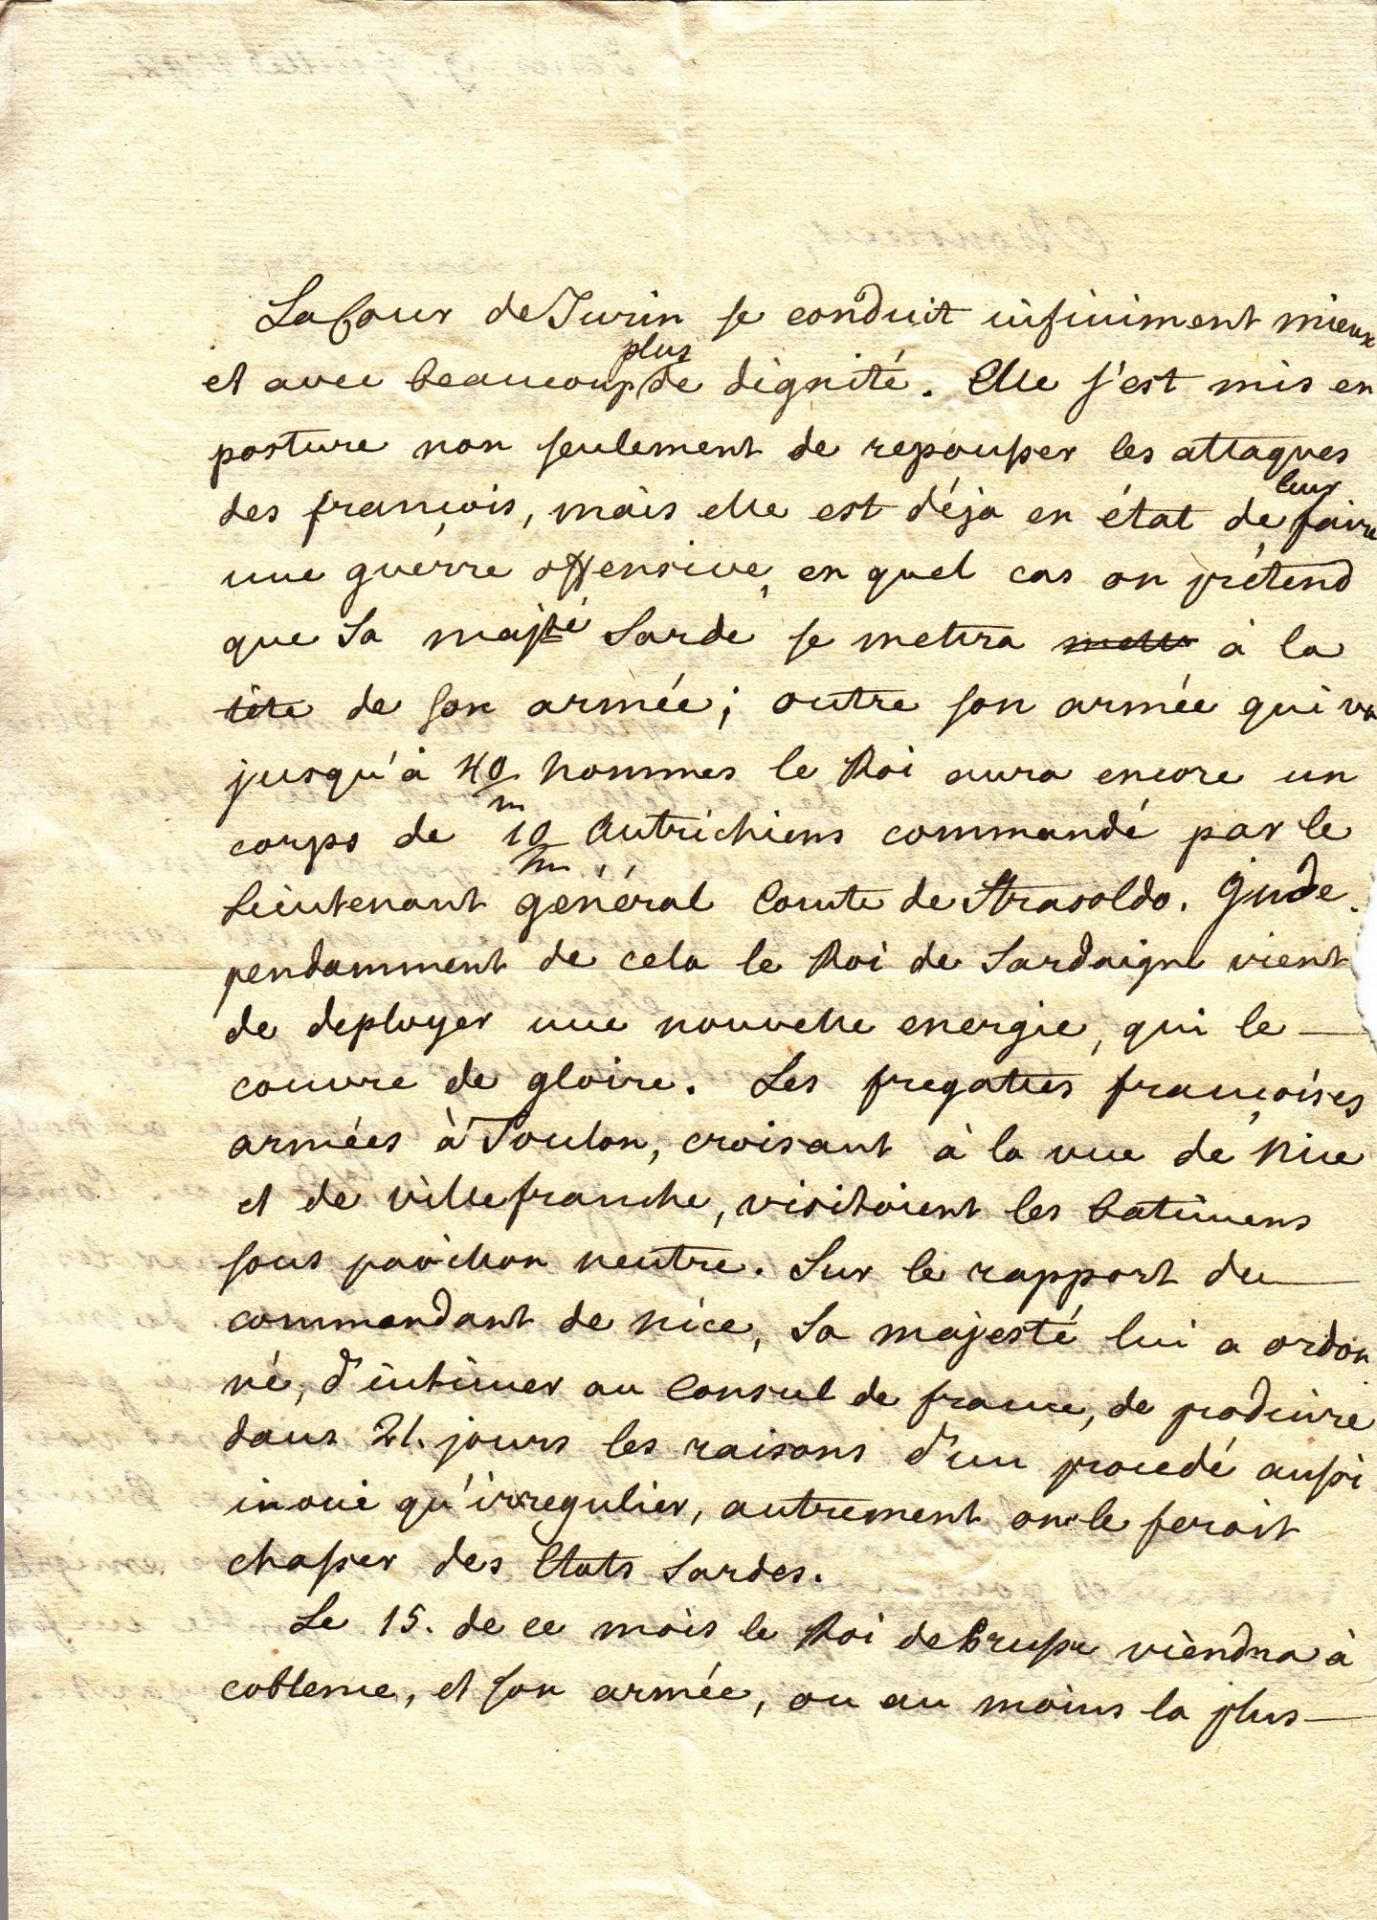 La Cour de Turin se conduit infiniment mieux
et avec beaucoup plus de dignité. Elle s'est mis en
posture non seulement de repousser les attaques
des françois, mais elle est déja en état de leur faire
une guerre offensive, en quel cas on prétend
que Sa majté Sarde se mettra à la
tête de son armée; outre son armée qui va
jusqu'à 40/m hommes le Roi aura encore un
corps de 10/m Autrichiens commandé par le
Lieutenant général Comte de Strasoldo. Inde-
pendamment de cela le Roi de Sardaigne vient
de deployer une nouvelle energie, qui le
couvre de gloire. Les fregattes françoises
armées à Toulon, croisant à la vue de Nice
et de villefranche, visitoient les batimens
sous pavillon neutre. Sur le rapport du
commandant de Nice, Sa majesté lui a ordon
né, d'intimer au Consul de france, de produire
dans 21. jours les raisons d'un procedé aussi
inoui qu'irregulier, autrement on le feroit
chasser des Etats Sardes.
Le 15. de ce mois le Roi de Prusse viendra à
coblence, et son armée, ou au moins la plus